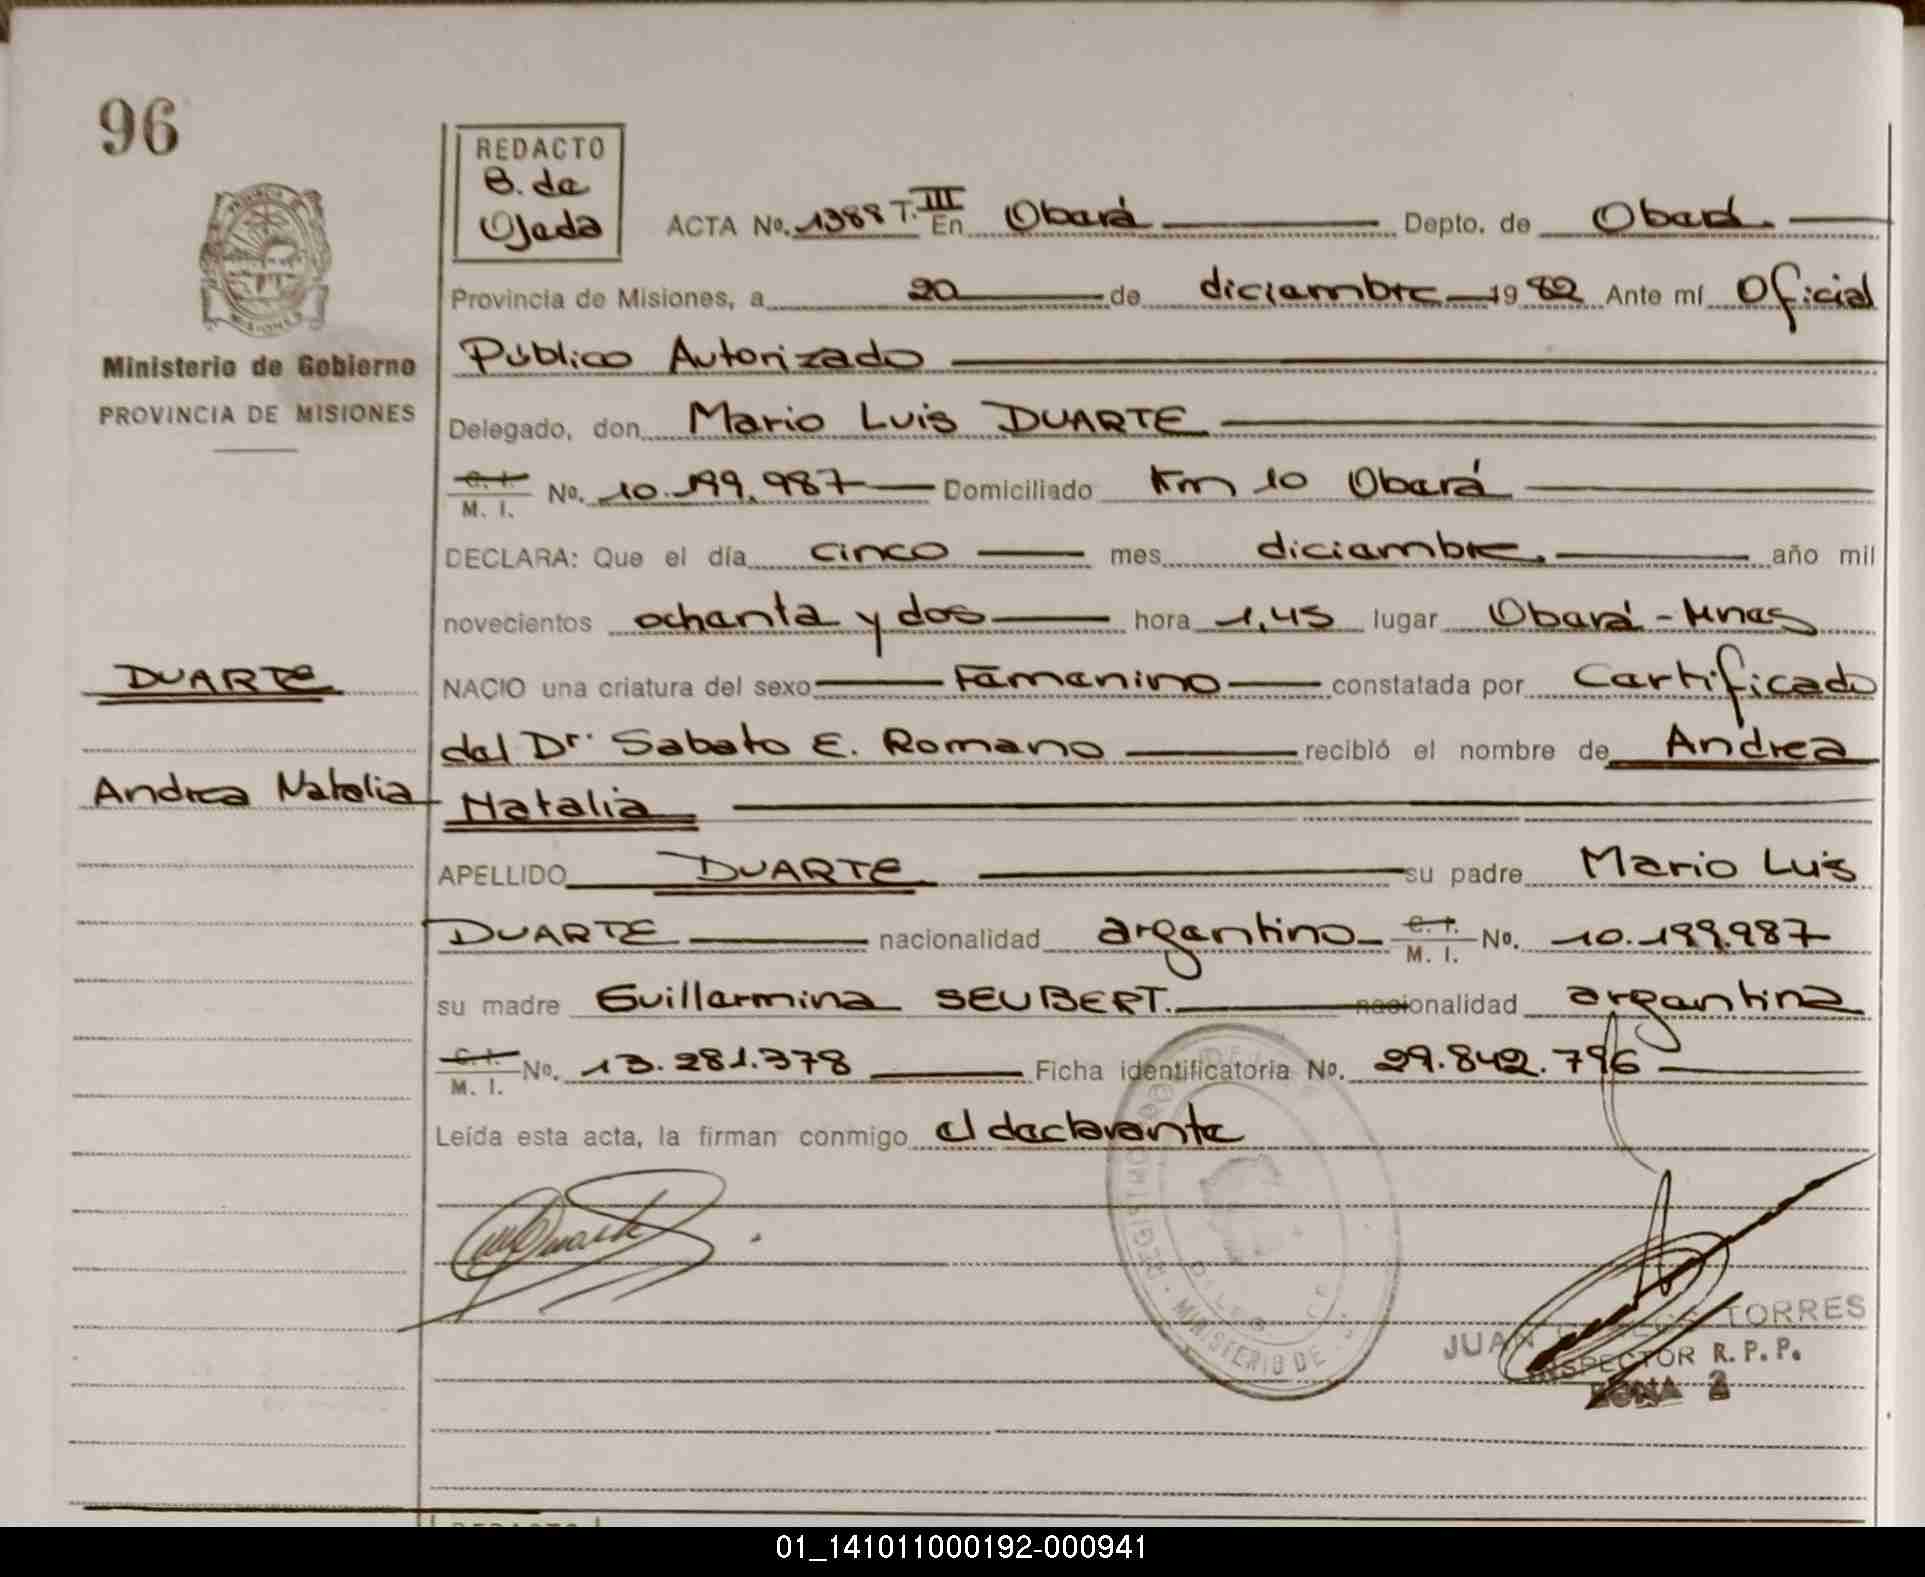 96
REDACTO
B. de
Ojeda
ACTA No. 1388 T. III En Oberá Depto. de Oberá
Provincia de Misiones, a 20 de diciembre 19 82 Ante mí Oficial
Ministerio de Gobierno
PROVINCIA DE MISIONES
Público Autorizado
Delegado, don Mario Luis DUARTE
C. I.
M. I. No. 10.199.987 Domiciliado Km 10 Oberá
DECLARA: Que el día cinco mes diciembre año mil
novecientos ochenta y dos hora 1,45 lugar Oberá - Mnes
DUARTE
NACIO una criatura del sexo Femenino constatada por Certificado
del Dr. Sabato E. Romano recibió el nombre de Andrea
Andrea Natalia
Natalia
APELLIDO DUARTE su padre Mario Luis
DUARTE nacionalidad argentino C. I. M. I. No. 10.199.987
su madre Guillermina SEUBERT. nacionalidad argentina
C. I.
M. I. No. 13.281.378 Ficha identificatoria No. 29.842.796
Leída esta acta, la firman conmigo el declarante
MINISTERIO DE
JUAN TORRES
INSPECTOR R. P. P.
ZONA 2
01_141011000192-000941